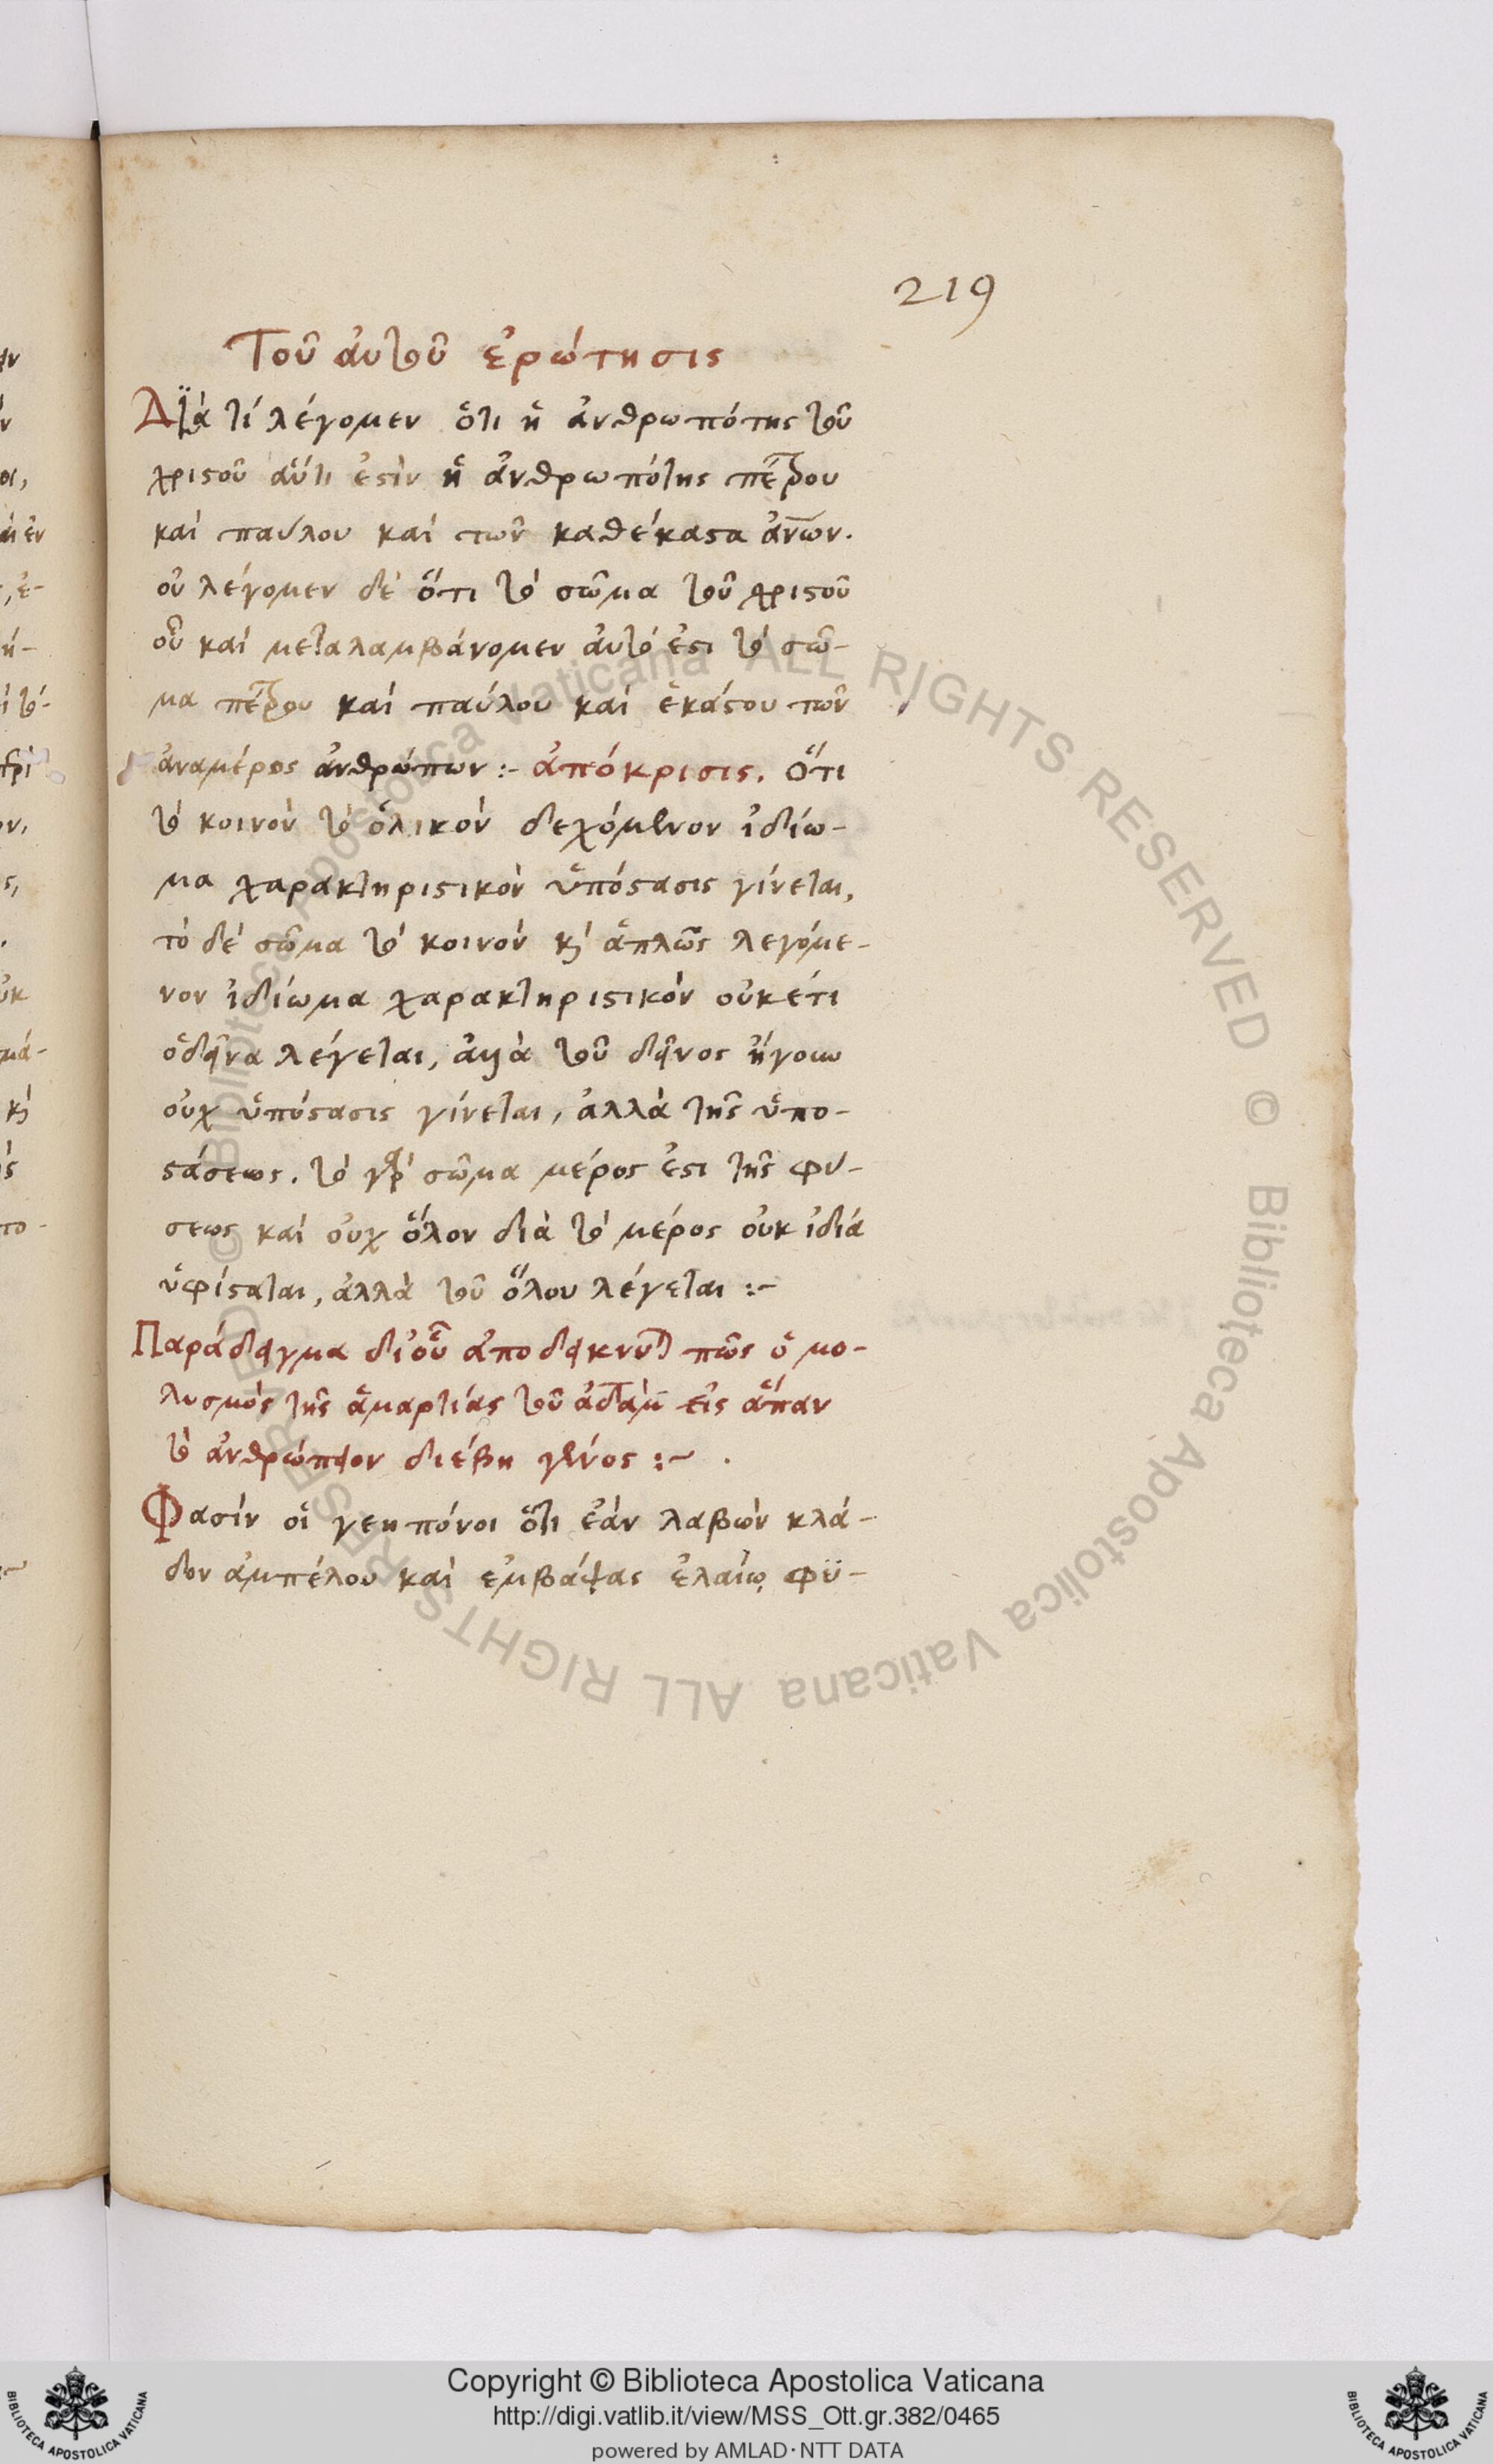 219
Τοῦ ἀυτοῦ ἐρώτησις
Διὰ τί λέγομεν ὅτι ἡ ἀνθρωπότης τοῦ
χριστοῦ ἀύτη ἐστὶν ἡ ἀνθρωπότης πέτρου
καὶ παύλου καὶ τῶν καθέκαστα ἀνων.
οὐ λέγομεν δὲ ὅτι τὸ σῶμα τοῦ χριστοῦ
οὗ καὶ μεταλαμβάνομεν ἀυτό ἐστι τὸ σῶ-
μα πέτρου καὶ παύλου καὶ ἑκάστου τῶν
ἀναμέρος ἀνθρώπων :- ἀπόκρισις. Ὅτι
τὸ κοινὸν τὸ ὁλικὸν δεχόμενον ἰδίω-
μα χαρακτηριστικὸν ὑπόστασις γίνεται,
τὸ δὲ σῶμα τὸ κοινὸν κὶ ἁπλῶς λεγόμε-
νον ἰδίωμα χαρακτηριστικὸν οὐκέτι
ὁδεῖνα λέγεται, ἀλλὰ τοῦ δεῖνος ἤγουν
οὐχ ὑπόστασις γίνεται, ἀλλὰ τῆς ὑπο-
στάσεως. τὸ γὰρ σῶμα μέρος ἐστι τῆς φύ-
σεως καὶ οὐχ ὅλον διὰ τὸ μέρος οὐκ ἰδιά
ὑφίσταται, ἀλλὰ τοῦ ὅλου λέγεται :-
Παράδειγμα δι οὗ ἀποδεικνυται πῶς ὁ μο-
λυσμὸς τῆς ἁμαρτίας τοῦ ἀδὰμ εἰς ἅπαν
τὸ ἀνθρώπειον διέβη γένος :-
Φασὶν οἱ γεηπόνοι ὅτι ἐάν λαβὼν κλά-
δον ἀμπέλου καὶ ἐμβάψας ἐλαίῳ φϋ-
© Biblioteca Apostolica Vaticana ALL RIGHTS RESERVED © Biblioteca Apostolica Vaticana ALL RIGHTS RESERVED
Copyright © Biblioteca Apostolica Vaticana
http://digi.vatlib.it/view/MSS_Ott.gr.382/0465
powered by AMLAD·NTT DATA
BIBLIOTECA APOSTOLICA VATICANA
BIBLIOTECA APOSTOLICA VATICANA